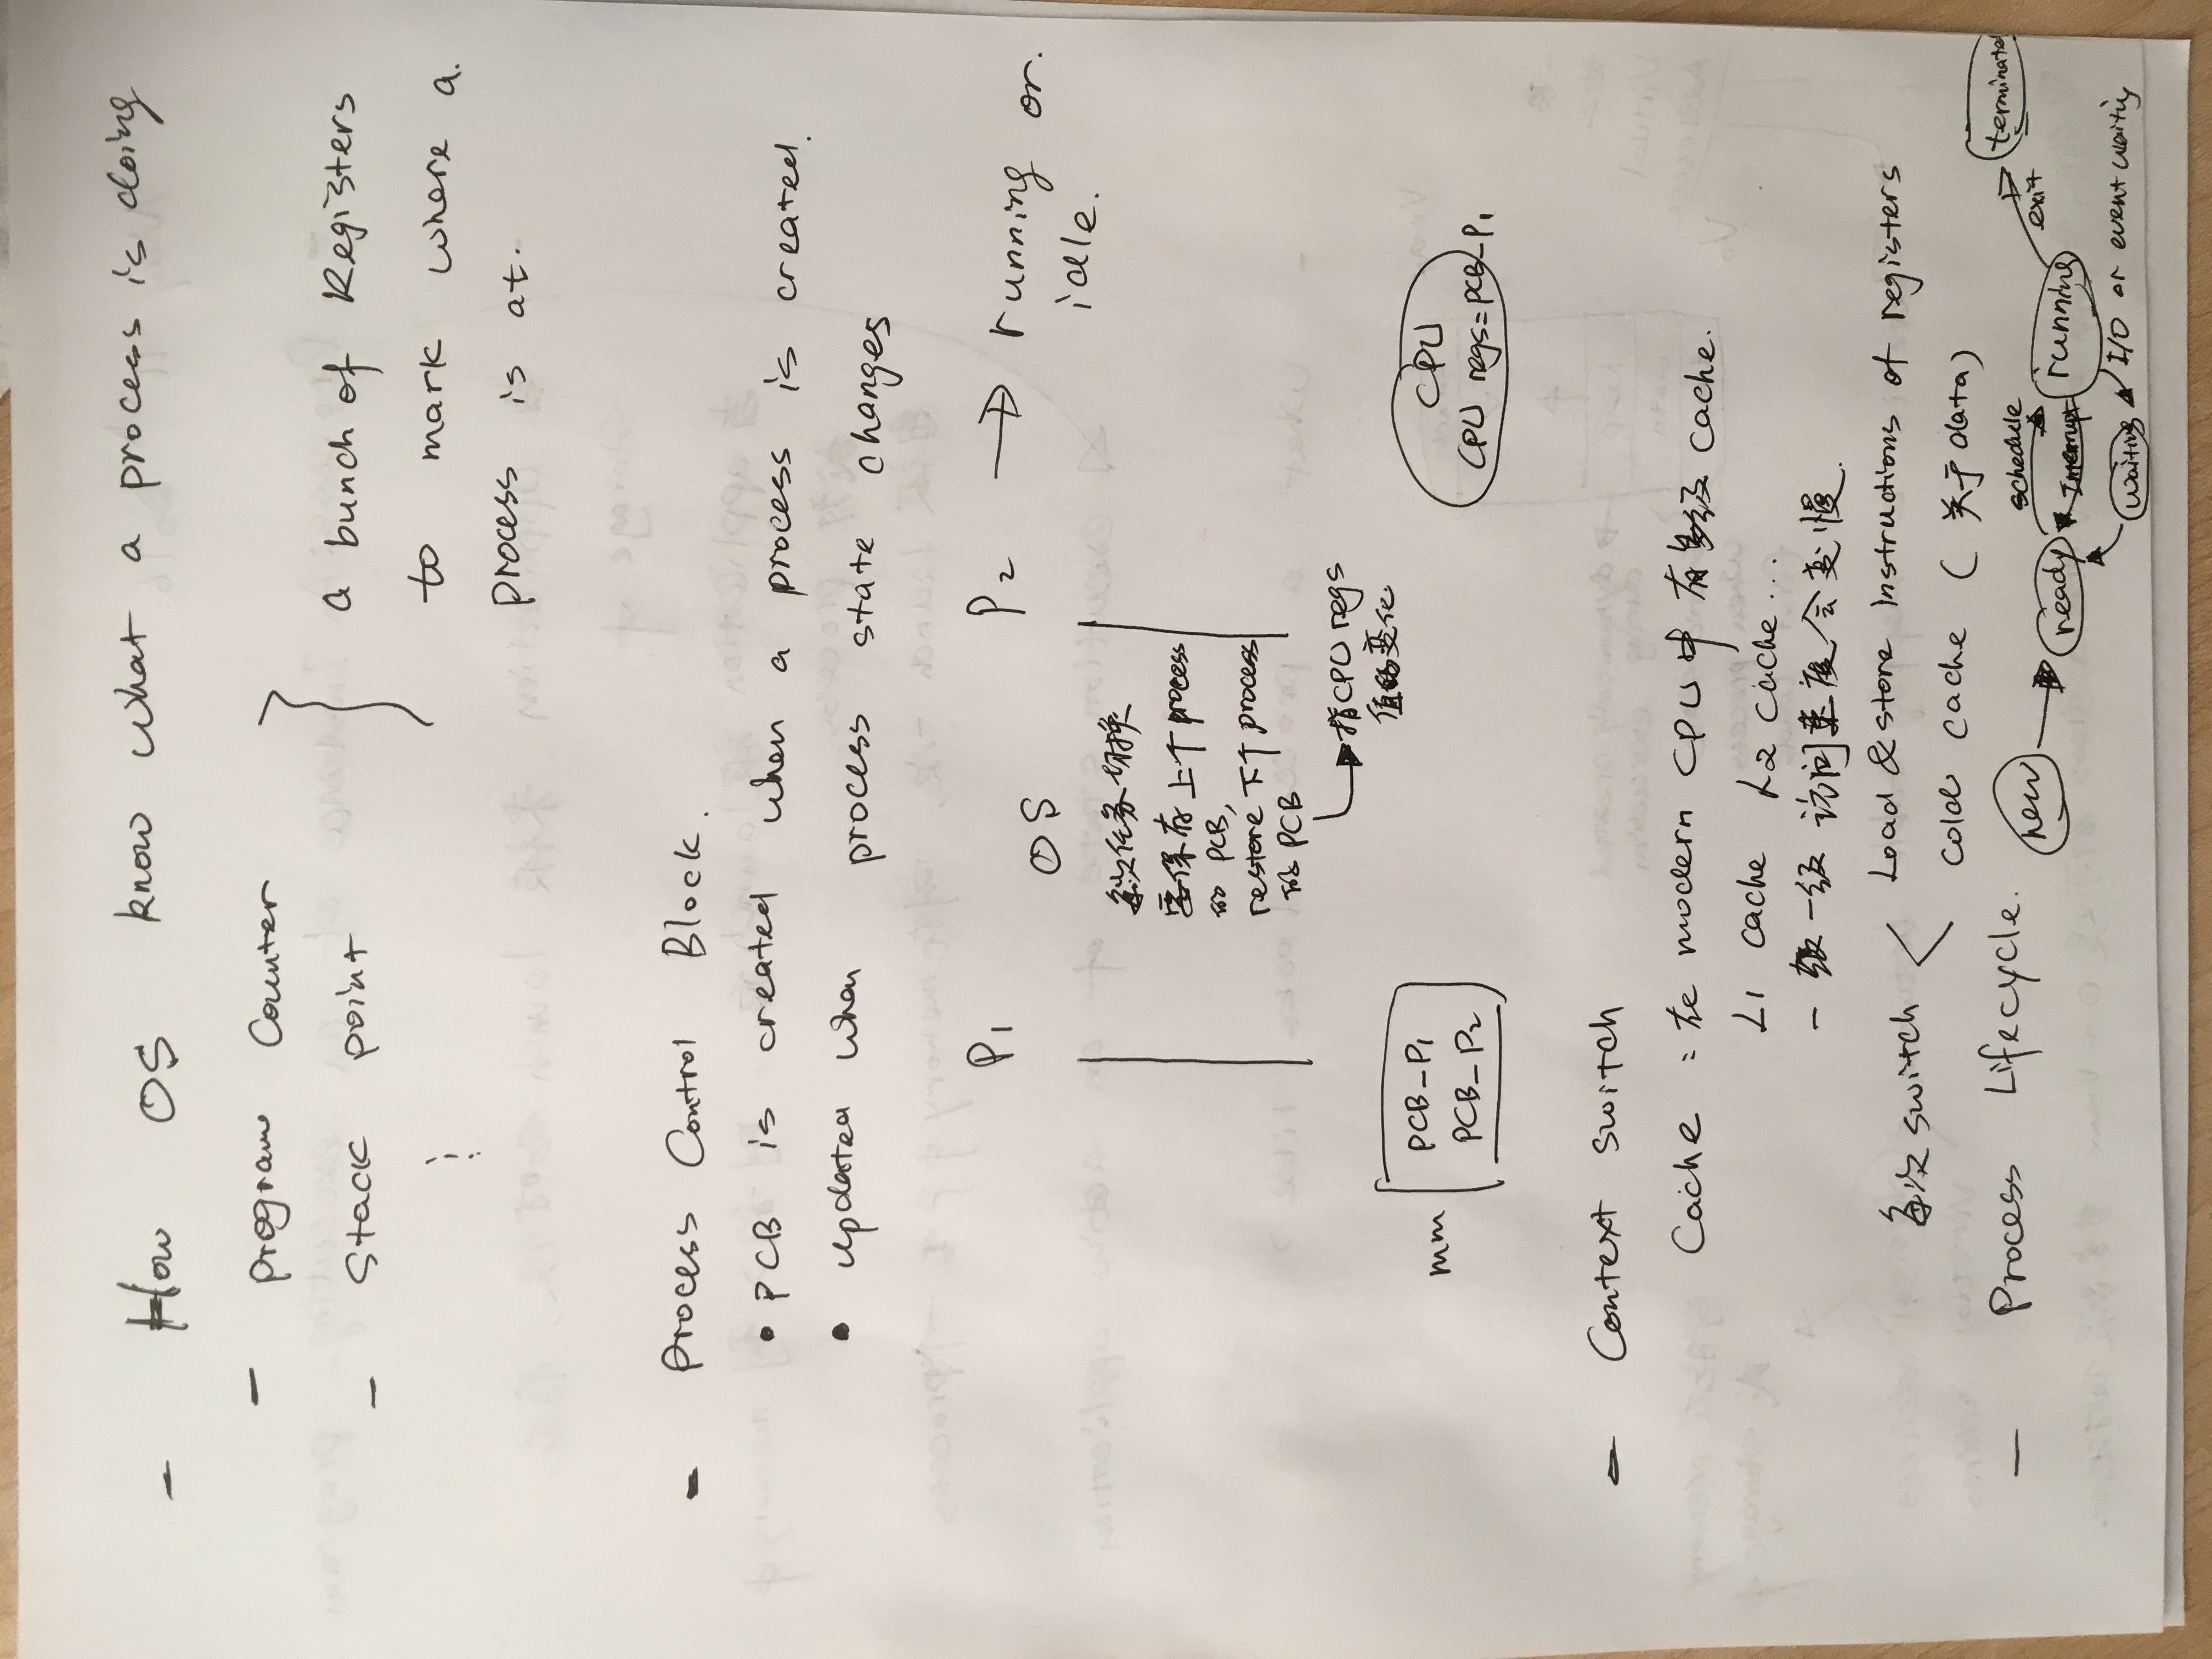 - How OS know what a process is doing
- program Counter
- Stack point
a bunch of Registers
to mark where a
process is at.
- Process Control Block.
• PCB is created when a process is created.
• updated when process state changes
P1
OS
P2 → running or
idle.
每次任务切换
要保存上个process
的 PCB,
restore 下个process
的 PCB
指CPU regs
值的变化
mm
PCB_P1
PCB_P2
CPU
CPU regs=PCB_P1
- Context switch
Cache : 在 modern CPU中 有多级 cache.
L1 cache L2 cache...
一级一级 访问速度会变慢.
每次switch
Load & store Instructions of registers
cold cache (关于data)
- Process Lifecycle.
new
ready
schedule
Interrupt
running
exit
terminated
waiting
I/O or event waiting